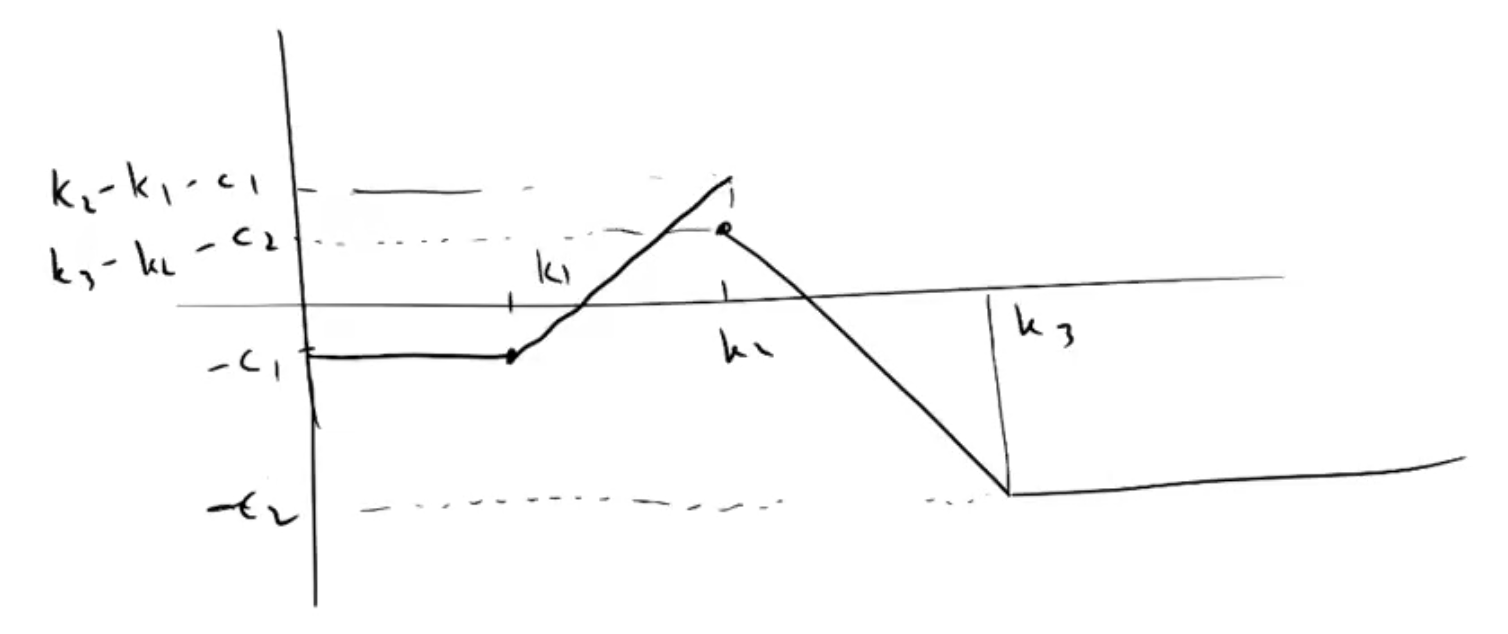 k₂ - k₁ - c₁
k₃ - k₂ - c₂
k₁
k₃
k₂
-c₁
-c₂